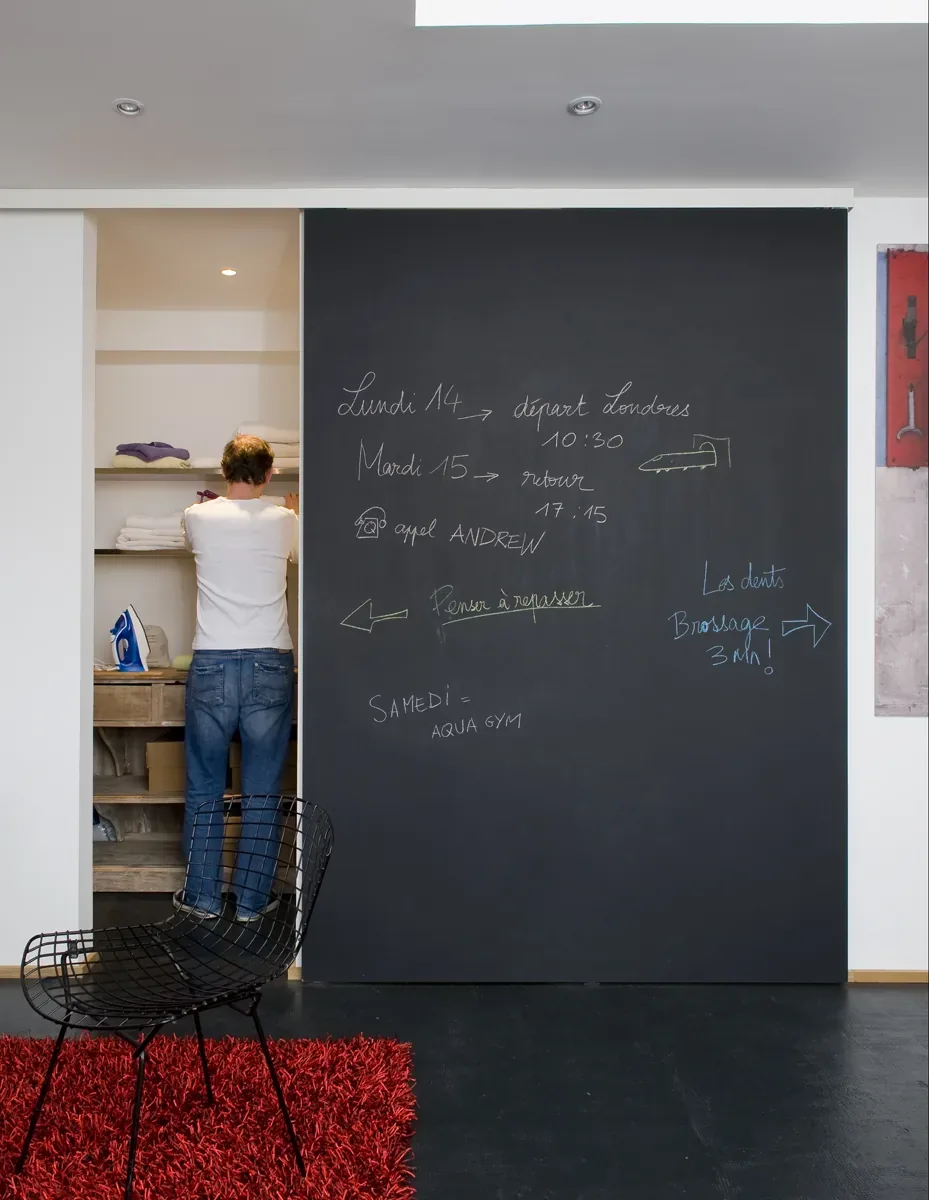 Lundi 14 → départ Londres
10:30
Mardi 15 → retour
17:15
appel ANDREW
Penser à repasser
Les dents
Brossage
3 Mn!
SAMEDI =
AQUA GYM